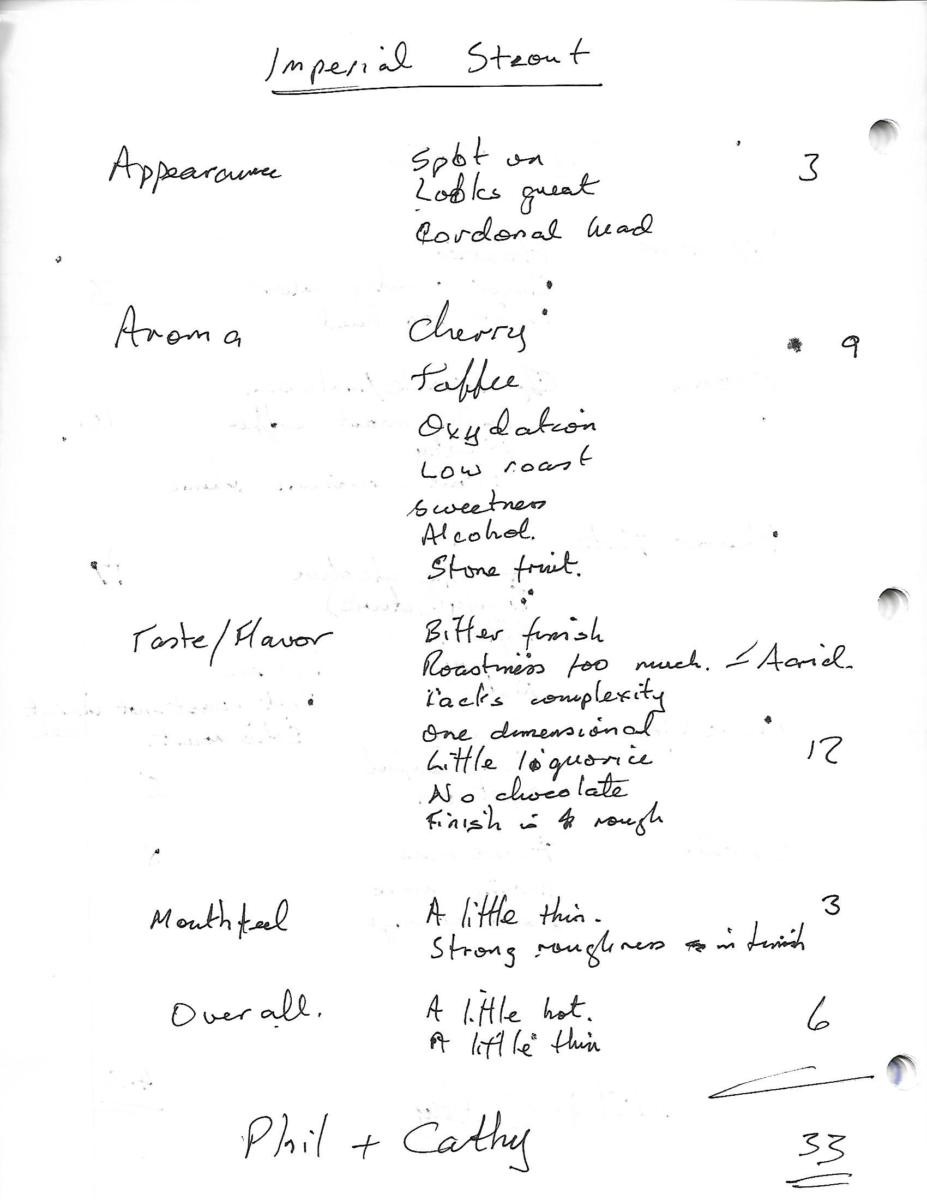 Imperial Stout
Appearance Spot on 3
Looks great
Cordonal head
Aroma Cherry 9
Toffee
Oxydation
Low roast
Sweetness
Alcohol.
Stone fruit.
Taste/Flavor Bitter finish
Roastiness too much. Acrid.
Lacks complexity
One dimensional
Little liquorice 12
No chocolate
Finish is rough
Mouthfeel A little thin. 3
Strong roughness in finish
Overall. A little hot. 6
A little thin
Phil + Cathy 33